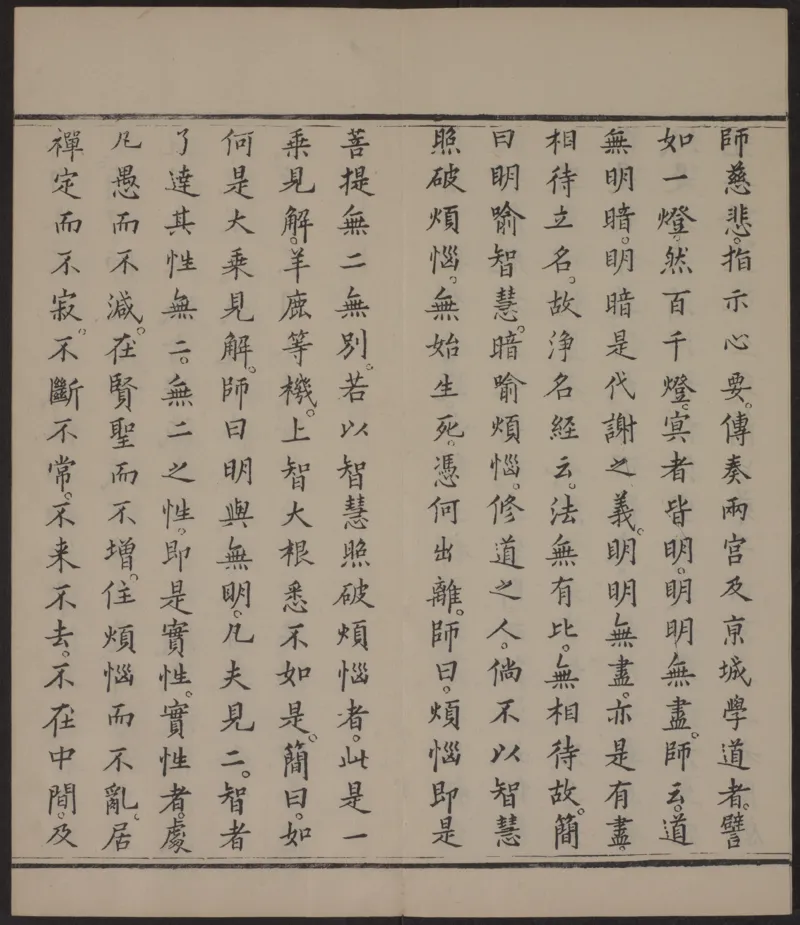 師慈悲。指示心要。傳奏兩宮及亰城學道者。譬
如一燈。然百千燈。冥者皆明。明明無盡。師云。道
無明暗。明暗是代謝之義。明明無盡。亦是有盡。
相待立名。故浄名經云。法無有比。無相待故。簡
曰明喻智慧。暗喻煩惱。修道之人。倘不以智慧
照破煩惱。無始生死。憑何出離。師曰。煩惱即是
菩提無二無別。若以智慧照破煩惱者。此是一
乗見解。羊鹿等機。上智大根悉不如是。簡曰。如
何是大乗見解。師曰明與無明。凡夫見二。智者
了達其性無二。無二之性。即是實性。實性者。處
凡愚而不減。在賢聖而不增。住煩惱而不亂。居
禪定而不寂。不斷不常。不来不去。不在中間。及